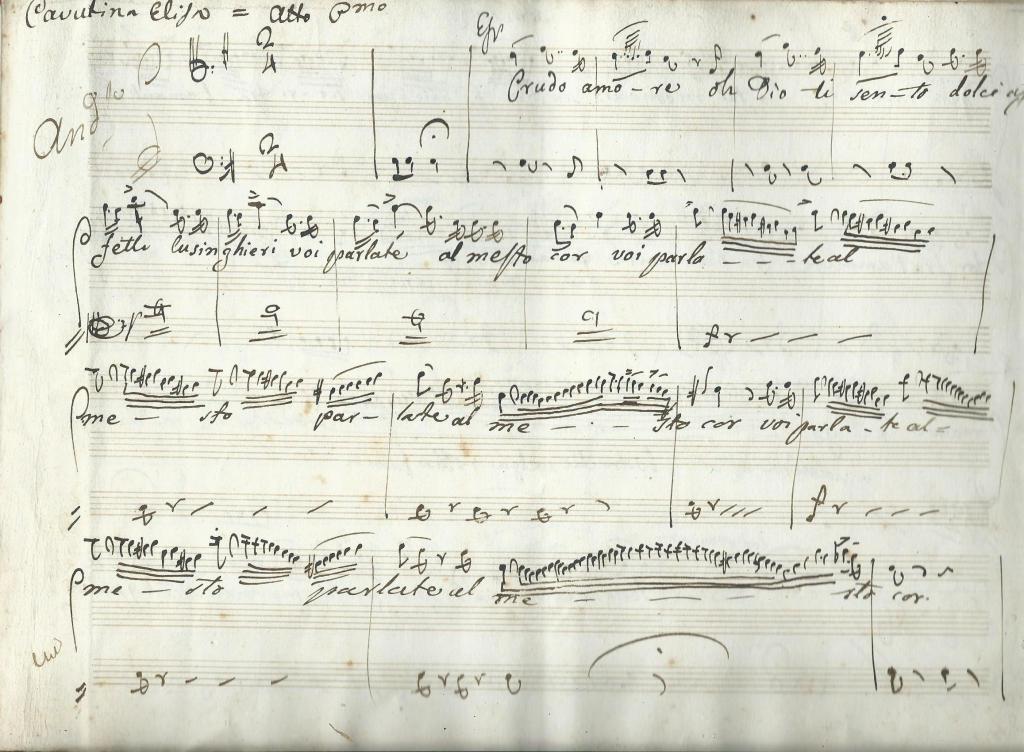 Cavatina Elisa = Atto Pmo
And.no
2/4
Crudo amo-re oh Dio ti sen-to dolci af
fetti lusinghieri voi parlate al mesto cor voi parla - - - te al
me - sto par- late al me - - - sto cor voi parla - te al=
me - sto parlate al me - - - sto cor.